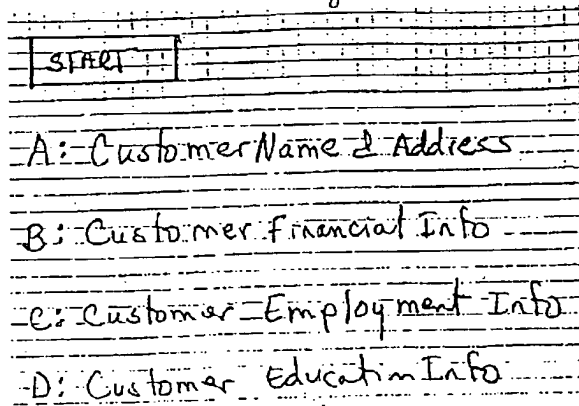 START
A: Customer Name & Address
B: Customer Financial Info
C: Customer Employment Info
D: Customer Education Info